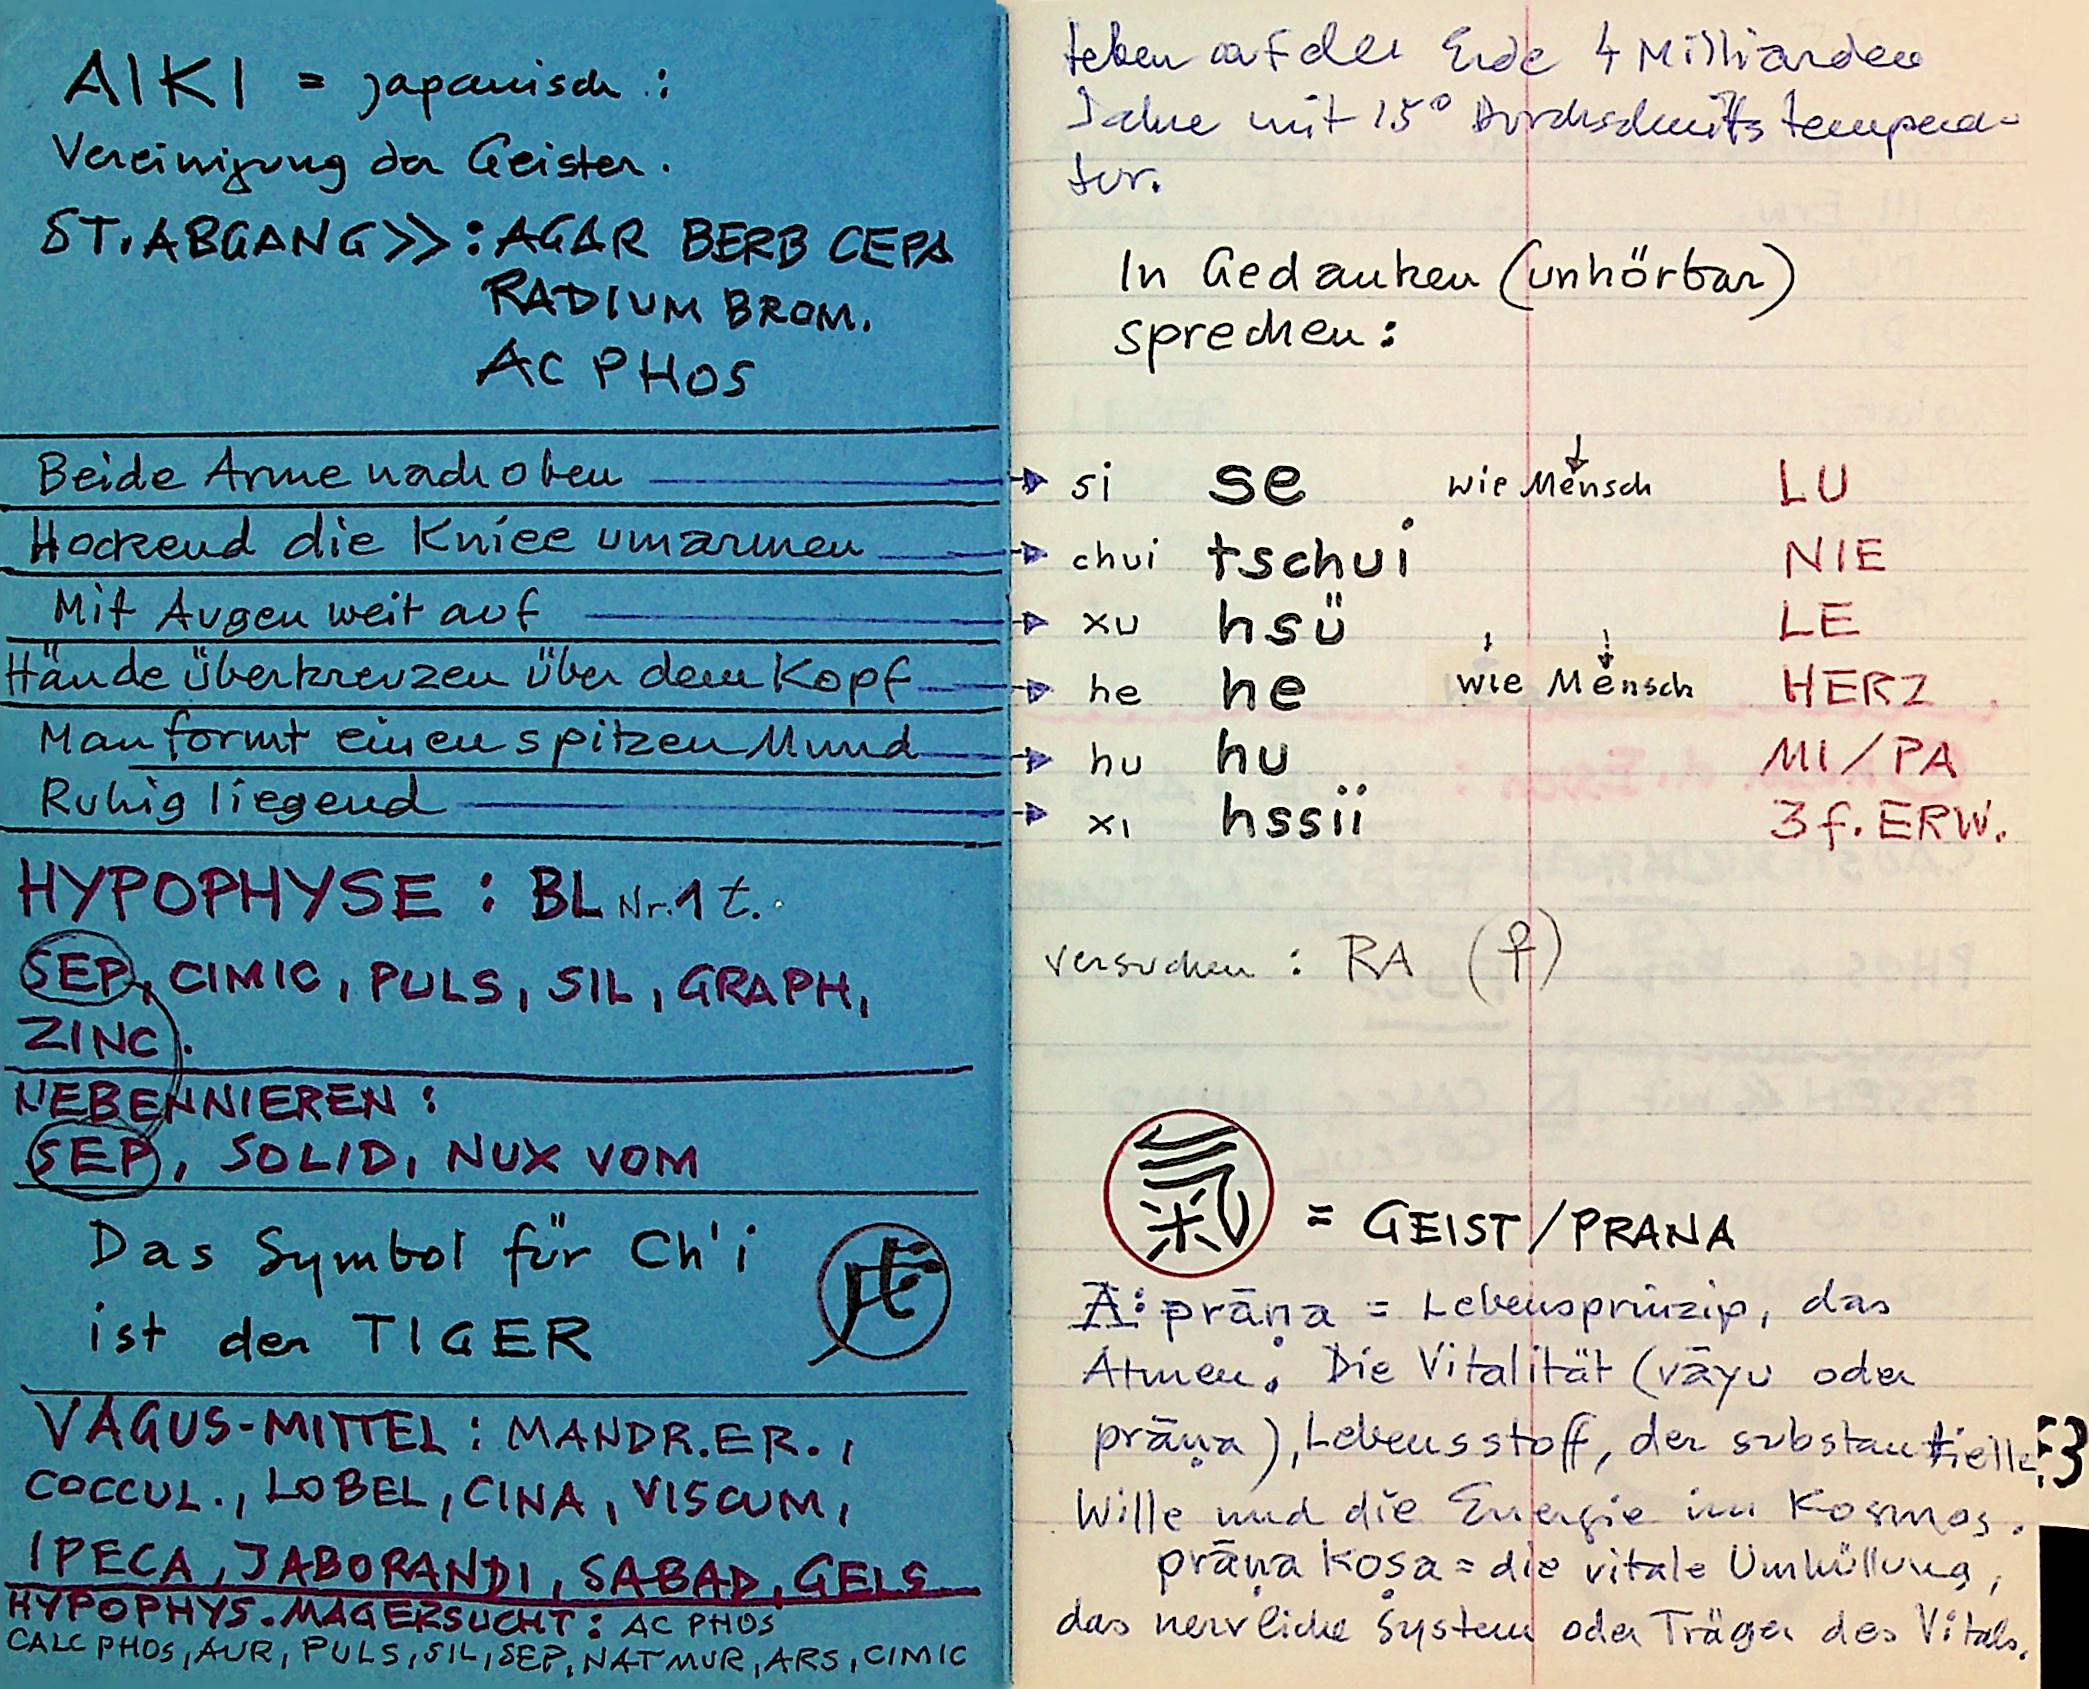 AIKI = japanisch:
Vereinigung der Geister.
ST. ABGANG >> : AGAR BERB CEPA
RADIUM BROM.
AC PHOS
Beide Arme nach oben
Hockend die Kniee umarmen
Mit Augen weit auf
Hände überkreuzen über dem Kopf
Man formt einen spitzen Mund
Ruhig liegend
HYPOPHYSE : BL Nr. 1 t.
SEP, CIMIC, PULS, SIL, GRAPH,
ZINC.
NEBENNIEREN :
SEP, SOLID, NUX VOM
Das Symbol für Ch'i
ist der TIGER
VAGUS-MITTEL : MANDR. ER.,
COCCUL., LOBEL, CINA, VISCUM,
IPECA, JABORANDI, SABAD, GELS
HYPOPHYS. MAGERSUCHT : AC PHOS
CALC PHOS, AUR, PULS, SIL, SEP, NAT MUR, ARS, CIMIC
Leben auf der Erde 4 Milliarden
Jahre mit 15° Durchschnittstempera-
tur.
In Gedanken (unhörbar)
sprechen :
si se wie Mensch LU
chui tschui NIE
xu hsü LE
he he wie Mensch HERZ
hu hu MI/PA
xi hssii 3 f. ERW.
versuchen : RA (☥)
氣 = GEIST/PRANA
Ā: prāṇa = Lebensprinzip, das
Atmen. Die Vitalität (vāyu oder
prāṇa), Lebensstoff, der substantielle
Wille und die Energie im Kosmos.
prāṇa Kosa = die vitale Umhüllung,
das nervliche System oder Träger des Vitals.